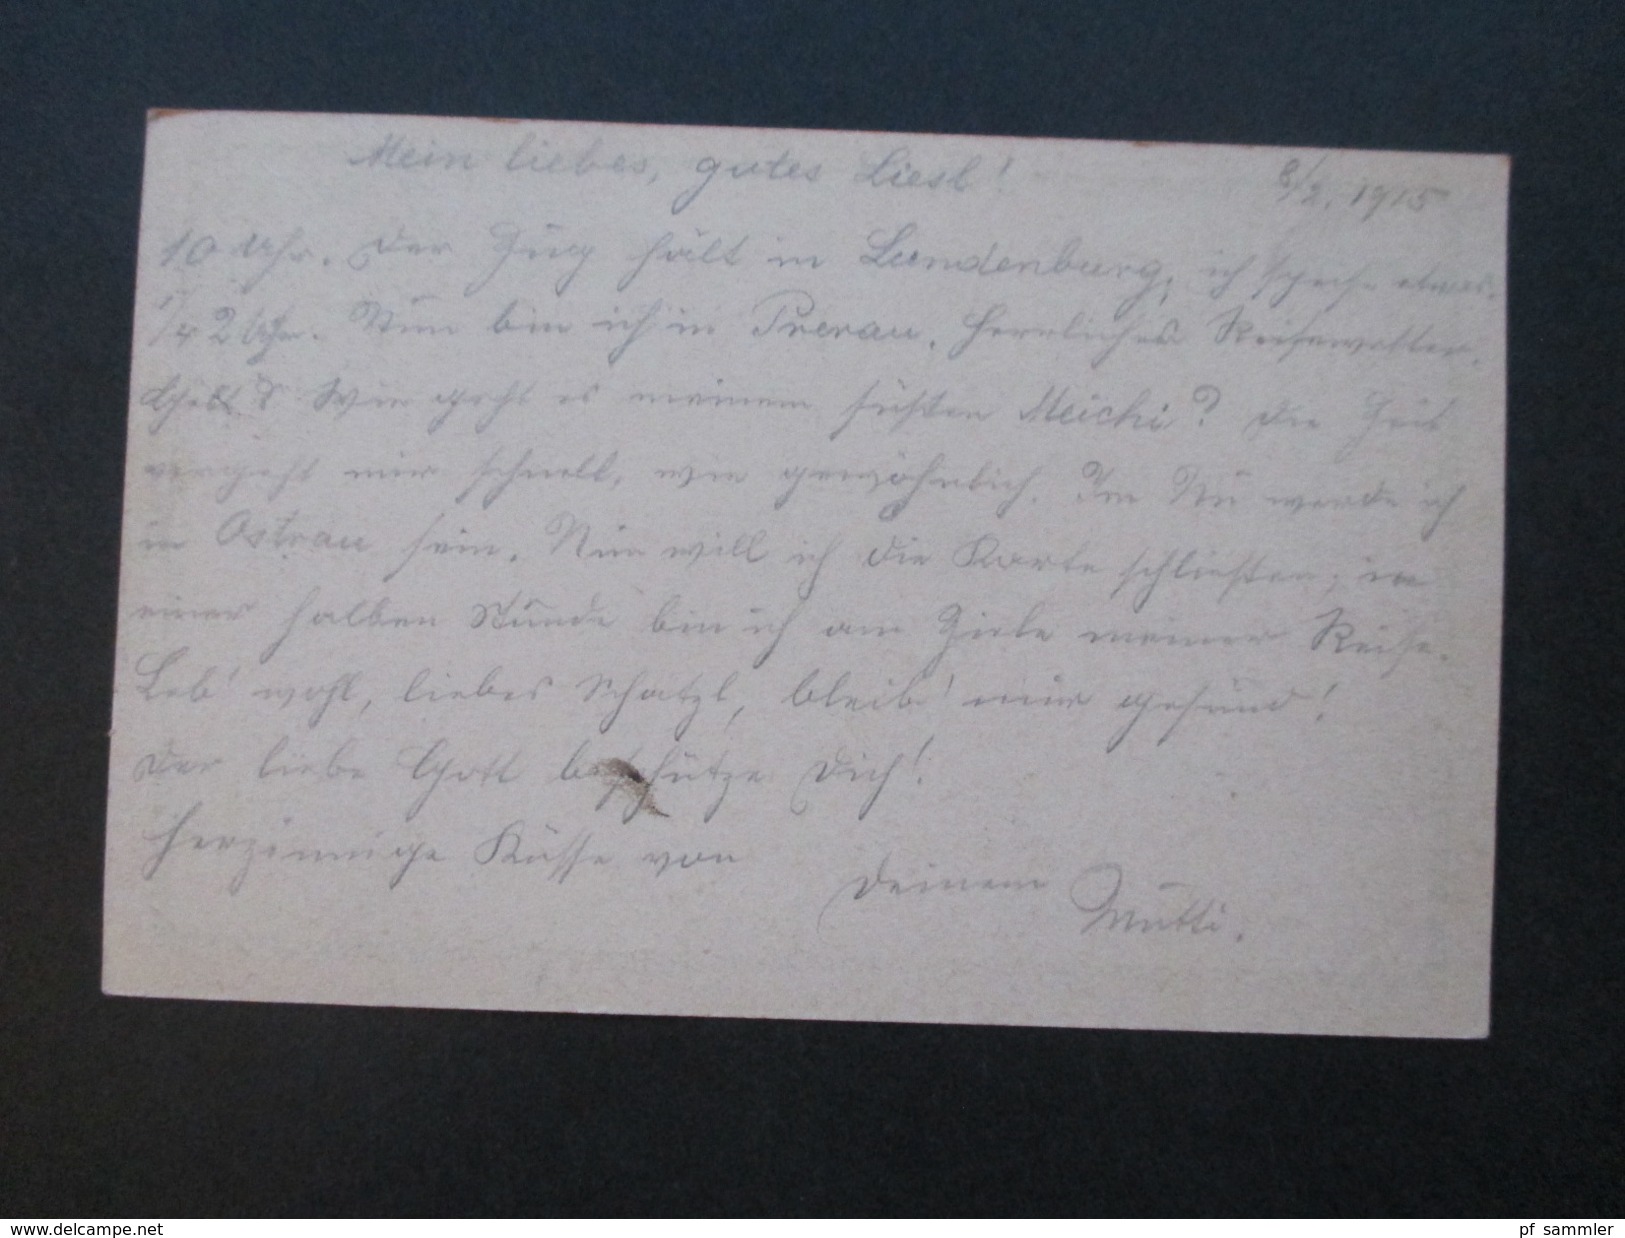 Mein liebes, gutes Liesl!
8/2. 1915
10 Uhr. Der Zug hält in Lundenburg, ich speise etwas.
1/4 2 Uhr. Nun bin ich in Prerau. Herrliches Reisewetter.
Wie geht es meinem süßen Meichi? Die Zeit
vergeht mir schnell, wie gewöhnlich. Im Nu werde ich
in Ostrau sein. Nun will ich die Karte schließen, in
einer halben Stunde bin ich am Ziele meiner Reise.
Leb' wohl, liebes Schatzl, bleib' nur gesund!
Der liebe Gott beschütze Dich!
Herzinnige Küsse von
Deinem
Mutti.
www.delcampe.net
pf_sammler